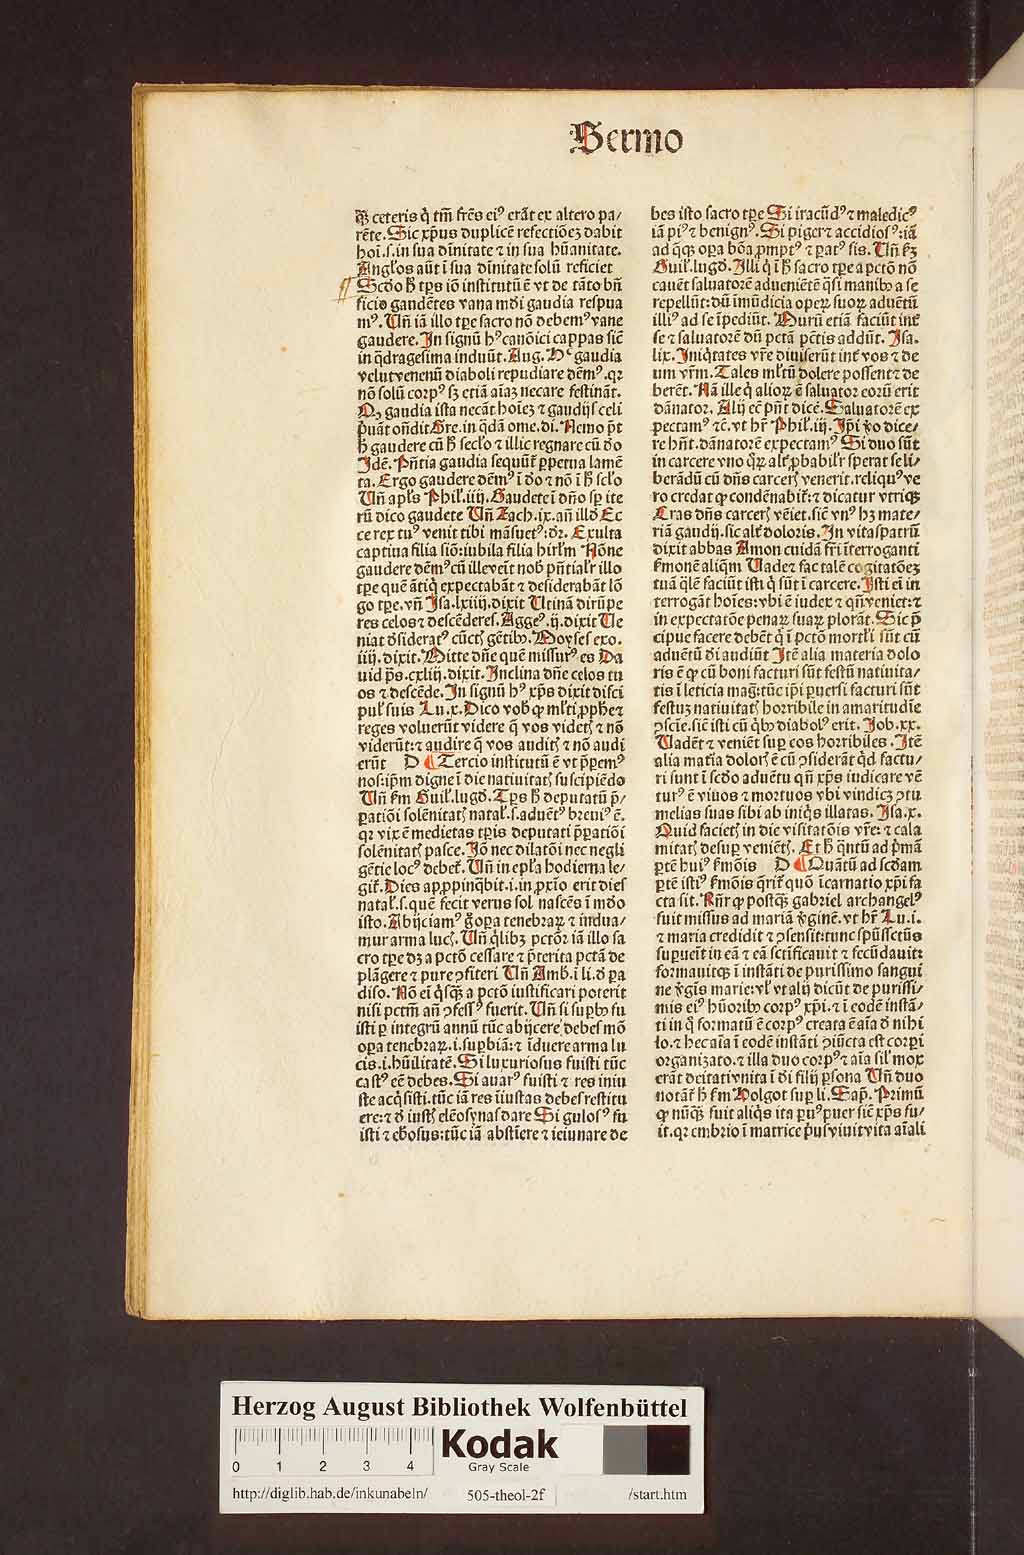 Sermo
ꝙ̃ ceteris q̇ tm̄ frēs eiꝰ erāt ex altero pa/
rēte. Sic xp̄us duplicē refectiōeꝫ dabit
hoī.ſ.in sua dīnitate ⁊ in sua hūanitate.
Angl'os aūt ī sua dīnitate solū reficiet
Scd̓o h̄ tꝑs iō institutū ē vt de tāto bn̄
ficio gandētes vana mūdi gaudia respua
mꝰ. Vn̄ iā illo tꝑe sacro nō debemꝰ vane
gaudere. In signū hꝰ canōici cappas siē
in q̄dragesima induūt. Aug. Hᵉ gaudia
velut venenū diaboli repudiare dēmꝰ.qꝛ
nō solū corpꝰ sꝫ etiā aīaꝫ necare festināt.
gaudia ista necāt hoīeꝫ ⁊ gaudijs celi
p̄uāt on̄dit Gre.in q̄dā ome.di. Nemo p̄t
h̄ gaudere cū h̄ sec̄lo ⁊ illic regnare cū d̓o
Idē. Pn̄tia gaudia sequūt̃ ꝑpetua lamē
ta. Ergo gaudere dēmꝰ ī d̓o ⁊ nō ī h̄ sc̄lo
Vn̄ apl's Phil'.iiij. Gaudete ī dn̄o sꝑ ite
rū dico gaudete Vn̄ Zach.ix.an̄ illd̓ Ec
ce rex tuꝰ venit tibi māsuetꝰ:d̓ꝛ. Exulta
captiua filia siō:iubila filia hirl'm Nōne
gaudere dēmꝰ cū ille veīt nob̓ pn̄tial'r illo
tꝑe quē ātiq̇ expectabāt ⁊ desiderabāt lō
go tꝑe.vn̄ Isa.lxiiij.dixit Utinā dirūpe
res celos ⁊ descēderes. Aggeꝰ.ij.dixit Ue
niat d̓sideratꝰ cūctꝭ gētibꝫ. Moyses exo.
iiij.dixit. Mitte dn̄e quē missurꝰ es Da
uid p̄s.cxliij.dixit. Inclina dn̄e celos tu
os ⁊ descēde. In signū hꝰ xp̄s dixit disci
pul' suis Lu.x. Dico vob̓ ꝙ ml'ti ꝓphē ⁊
reges voluerūt videre q̄ vos videtꝭ ⁊ nō
viderūt:⁊ audire q̄ vos auditꝭ ⁊ nō audi
erūt D ¶ Tercio institutū ē vt p̄ꝑemꝰ
nos:ip̄m digne ī die natiuitatꝭ suscipiēdo
Vn̄ ẜm Guil'.lugd̓. Tꝑs h̄ deputatū p̄/
ꝑatiōi solēnitatꝭ natal'.ſ.aduētꝰ breuiꝰ ē.
qꝛ vix ē medietas tꝑis deputati p̄ꝑatiōi
solēnitatꝭ pasce. Iō nec dilatōi nec negli
gētie locꝰ debet̃. Vn̄ in epl'a hodierna le/
git̃. Dies apꝓpinq̄bit.i.in ꝓxīo erit dies
natal'.ſ.quē fecit verus sol nascēs ī mūdo
isto. Abijciamꝰ ḡ opa tenebraꝝ ⁊ indua/
mur arma lucꝭ. Vn̄ q̇libꝫ pctōꝛ iā illo sa
cro tꝑe dꝫ a pctō cessare ⁊ p̄terita pctā de
plāgere ⁊ pure ꝯfiteri Vn̄ Amb̓.ī li.d̓ pa
diso. Nō eī q̇sꝙ̄ a pctō iustificari poterit
nisi pctm̄ an̄ ꝯfessꝰ fuerit. Vn̄ si suꝑbꝰ fu
isti ꝑ integrū annū tūc abijcere debes mō
oꝑa tenebraꝝ.i.suꝑbiā:⁊ īduere arma lu
cis.i.hūilitatē. Si luxuriosus fuisti tūc
castꝰ eē debes. Si auarꝰ fuisti ⁊ res iniu
ste acq̇sisti.tūc iā res iīustas debes restitu
ere:⁊ d̓ iustꝭ elēosynas dare Si gulosꝰ fu
isti ⁊ ebosus:tūc iā abstīere ⁊ ieiunare de
bes isto sacro tꝑe Si iracūdꝰ ⁊ maledicꝰ
iā piꝰ ⁊ benignꝰ. Si piger ⁊ accidiosꝰ:iā
ad q̄qꝫ oꝑa bōa ꝓmptꝰ ⁊ ꝑatꝰ sis. Vn̄ ẜꝫ
Guil'.lugd̓. Illi q̇ ī h̄ sacro tꝑe a pctō nō
cauēt saluatorē aduenietē q̄si manibꝫ a se
repellūt:dū īmūdicia opeꝝ suoꝝ aduētū
illiꝰ ad se īpediūt. Murū etiā faciūt int̃
se ⁊ saluatorē dū pctā pctīs addūt. Isa.
lix. Iniq̇tates vr̄e diuiserūt int̃ vos ⁊ de
um vr̄m. Tales ml'tū dolere possent ⁊ de
berēt. Nā ille q̇ alioꝝ ē saluator eorū erit
dānator. Alij eē pn̄t dicē. Saluatorē ex
pectamꝰ ⁊c̄.vt hr̄ Phil'.iij. Ip̄i v̓o dice/
re hn̄t.dānatorē expectamꝰ Si duo sūt
in carcere vno q̄ꝝ alt̃ ꝓbabil'r sperat se li/
berādū cū dn̄s carcerꝭ venerit.reliquꝰ ve
ro credat ꝙ condēnabit̃:⁊ dicatur vtriqꝫ
Cras dn̄s carcerꝭ vēiet.siē vnꝰ hꝫ mate/
riā gaudij.sic alt̃ doloris. In vitaspatrū
dixit abbas Amon cuidā fr̄i īterroganti
ẜmonē aliqm̄ Vade ⁊ fac talē cogitatōeꝫ
tuā q̄lē faciūt isti q̇ sūt ī carcere. Isti eī in
terrogāt hoīes:vbi ē iudex ⁊ qn̄ veniet:⁊
in expectatōe penaꝝ suaꝝ plorāt. Sic p̄
cipue facere debēt q̇ ī pctō mortl'i sūt cū
aduētū dī audiūt Itē alia materia dolo
ris ē ꝙ cū boni facturi sūt festū natiuita/
tis ī leticia mag̃:tūc ip̄i ꝑuersi facturi sūt
festuꝫ natiuitatꝭ horribile in amaritudīe
ꝯsciē.siē isti cū q̇bꝫ diabolꝰ erit. Iob.xx.
Vadēt ⁊ veniēt suꝑ eos horribiles. Itē
alia mat̃ia dolorꝭ ē cū ꝯsiderāt qd̓ factu/
ri sunt ī scd̓o aduētu qn̄ xp̄s iudicare vē
turꝰ ē viuos ⁊ mortuos vbi vindicꝫ ꝯtu
melias suas sibi ab iniq̇s illatas. Isa.x.
Quid facietꝭ in die visitatōis vr̄e:⁊ cala
mitatꝭ desuꝑ veniētꝭ. Et h̄ q̄ntū ad p̄mā
ꝑtē huiꝰ ẜmōis D ¶ Quātū ad scd̓am
ꝑtē istiꝰ ẜmōis q̄rit̃ quō īcarnatio xp̄i fa
cta sit. Rn̄r ꝙ postꝙ̄ gabriel archangelꝰ
fuit missus ad mariā v̓ginē.vt hr̄ Lu.i.
⁊ maria credidit ⁊ ꝯsensit:tunc spūssctūs
supueīt in eā ⁊ eā sctīficauit ⁊ fecūdauit:
formauitqꝫ ī instāti de purissimo sangui
ne v̓gīs marie:vl' vt alij dicūt de purissi/
mis eiꝰ hūoribꝫ corpꝰ xp̄i.⁊ ī eodē instā/
ti in q̇ formatū ē corpꝰ creata ē aīa d̓ nihi
lo.⁊ hec aīa ī eodē instāti ꝯiūcta est corpi
organizato.⁊ illa duo corpꝰ ⁊ aīa sil' mox
erāt deitati vnita ī dī filij ꝑsona Vn̄ duo
notāt̃ h̄ ẜm Holgot suꝑ li. Sap̄. Primū
ꝙ nūꝙ̄ fuit aliq̇s ita puꝰ puer siē xp̄s fu/
it.qꝛ embrio ī matrice p̓us viuit vita aīali
Herzog August Bibliothek Wolfenbüttel
0 1 2 3 4
Kodak
Gray Scale
http://diglib.hab.de/inkunabeln/ 505-theol-2f /start.htm